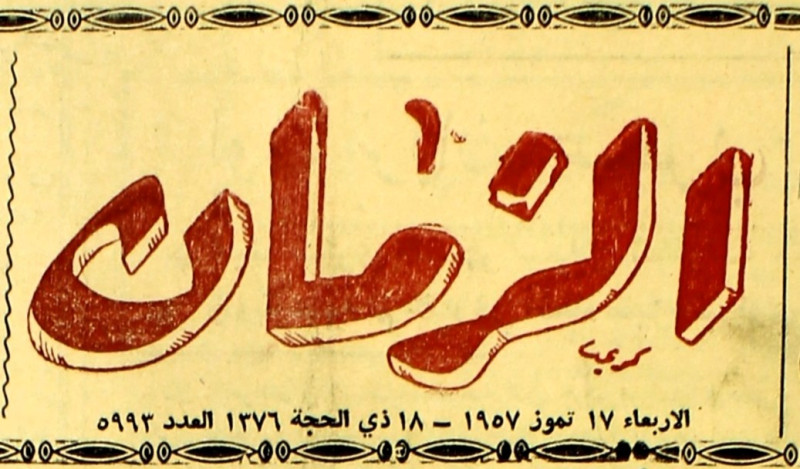 الزمان
كريم
الاربعاء ١٧ تموز ١٩٥٧ – ١٨ ذي الحجة ١٣٧٦ العدد ٥٩٩٣